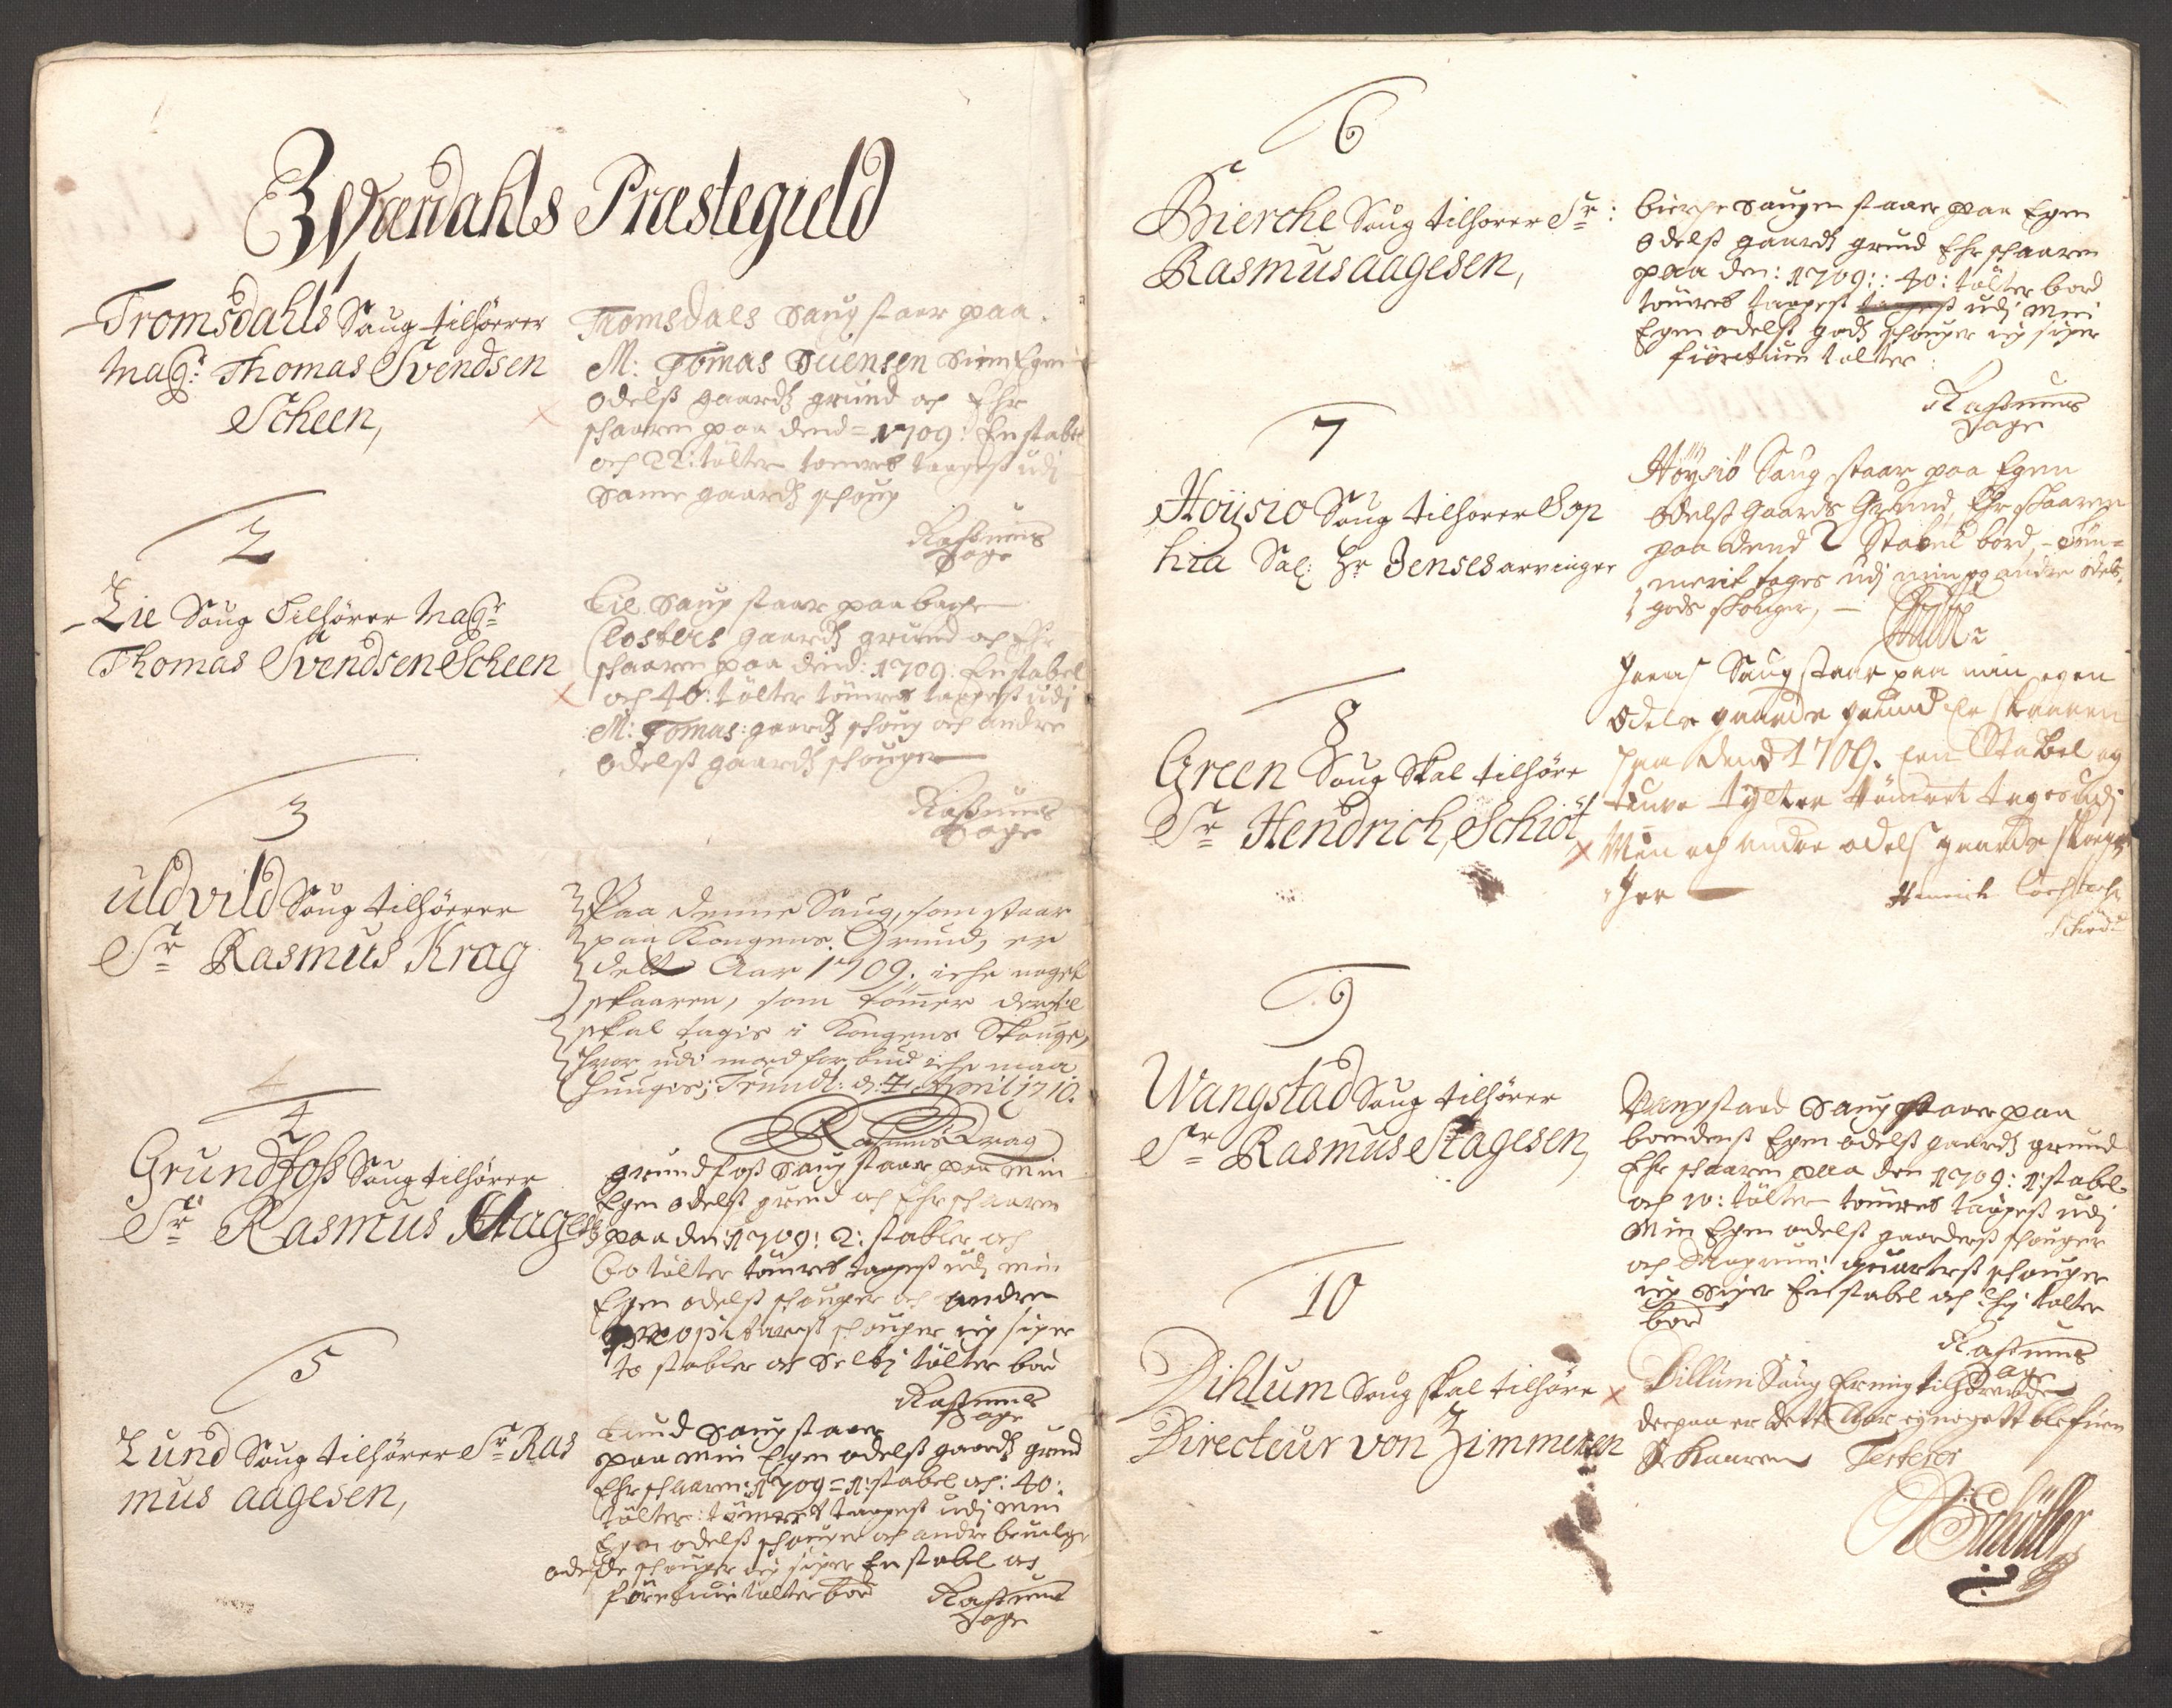 Værdahls Præstegield
1
Tromsdahls Saug tilhørrer
Mag: Thomas Svendsen
Scheen,
Tromsdals Saug staar paa
M: Tomas Suensen Sin Egen
Odelß gaardß grund och Ehr
schaaren paa dend = 1709: En stabel
och 22: tölter tømret taagest udj
Same gaardß schoug
Raßmus
Aage
2
Lie Saug Tilhörer Mag:
Thomas Svendsen Scheen
Lie Saug staar paa bache
Closters gaardß grund och Ehr
schaaren paa dend: 1709: En stabel
och 40: tölter tömret taagest udj
M: Tomas: gaardß schoug och andre
Odelß gaardß schouger
Raßmus
Aage
3
Uldvild Saug tilhörer
Sr Rasmus Krag
Paa denne Saug, som staar
paa Kongens Grund, er
dette Aar 1709. iche noget
skaaren, som tömer dertil
skal tagis i Kongens Skouge,
hvor udi med forbud iche maa
hugges; Trundh: d: 4 April 1710.
Rasmus Krag
4
Grundfoss Saug tilhörer
Sr Rasmus Aages
grundfoß Saug staar paa Min
Egen odelß grund och Ehr schaaren
paa den: 1709: 2: stabler och
60 tölter tömret taagest udj min
Egen odelß schouger och andre
schouger jeg siger
to stabler och tölter bord
Raßmus
Aage
5
Lund Saug tilhörer Sr Ras
mus Aagesen,
Lund Saug staar
paa Min Egen odelß gaardß grund
Ehr schaaren: 1709 = 1: stabel och: 40:
tölter: tömret taagest udj Min
Egen odelß schouger och andre
schouger jeg siger En stabel och
tölter bord
Raßmus
Aage
6
Bierche Saug tilhorer Sr:
Rasmus Aagesen,
bierche Saugen staar paa Egen
Odelß gaardß grund Ehr schaaren
paa den: 1709:: 40: tölter bord
tömret taagest udj Min
Egen odelß godß schouger jeg siger
tolter
Raßmus
Aage
7
Hoÿsio Saug tilhorer Sop
hia Sal: Hr Jenses arvinger
Höysiö Saug staar paa Egen
odelß Gaards Grund, Ehr skaaren
paa dend 2 Stabel bord, - töm=
meret tages udj min og andre odels
gods skouger, -
8
Green Saug Skal tilhöre
Sr Hendrich Schiöt
Saug staar paa min egen
Odels gaards grund Er skaaren
paa dend 1709. Een Stabel og
tölter tömmer tages udj
Min och andre odelß gaards skouge
9
Wangstad Saug tilhörer
Sr Rasmus Aagesen,
Vangstaad Saug staar paa
bondenß Egen odelß gaardß grund
Ehr schaaren paa den 1709: 1: stabel
och 10: tölter tömret taagest udj
Min Egen odelß gaarderß schouger
och schouger
jeg siger En stabel och tj tölter
bord
Raßmus
Aage
10
Dihlum Saug skal tilhöre
Directeur von Zimmeren
Dillum Saug Er mig tilhörende
derpaa er dette Aar ey noget blefuen
Skaaren Testerer
Schöller